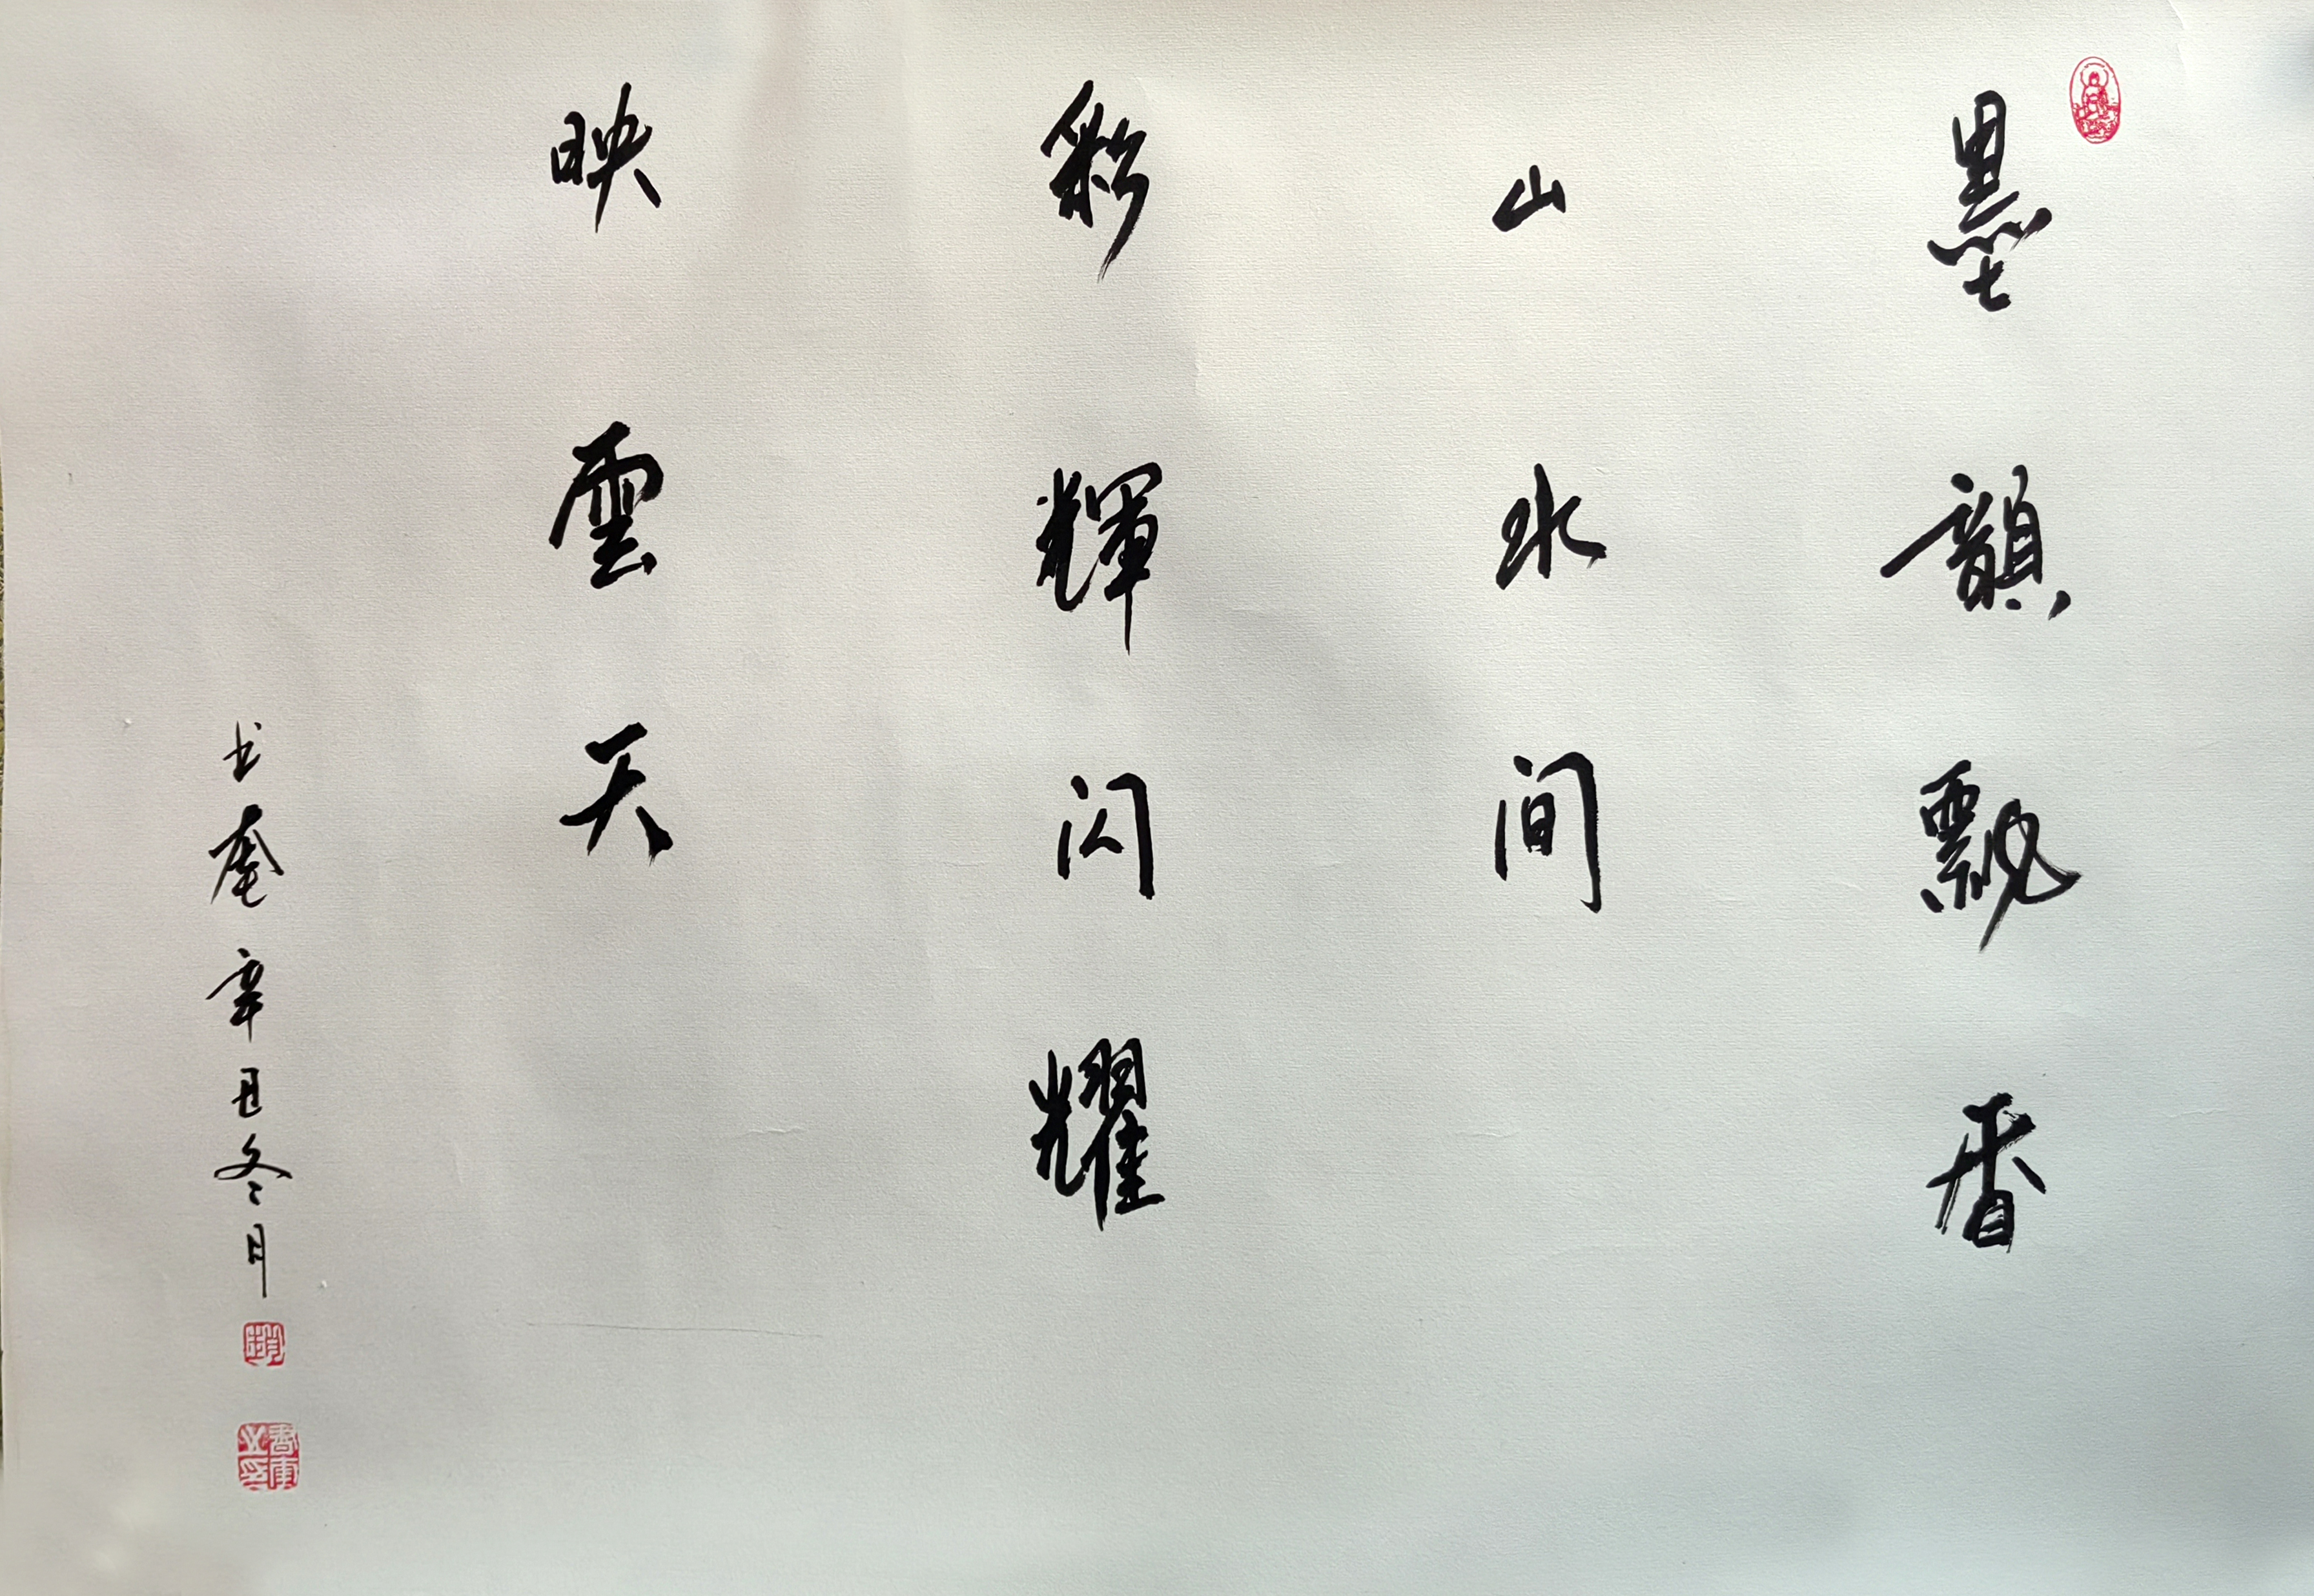 墨韻飄香
山水间
彩輝闪耀
映雲天
辛丑冬月